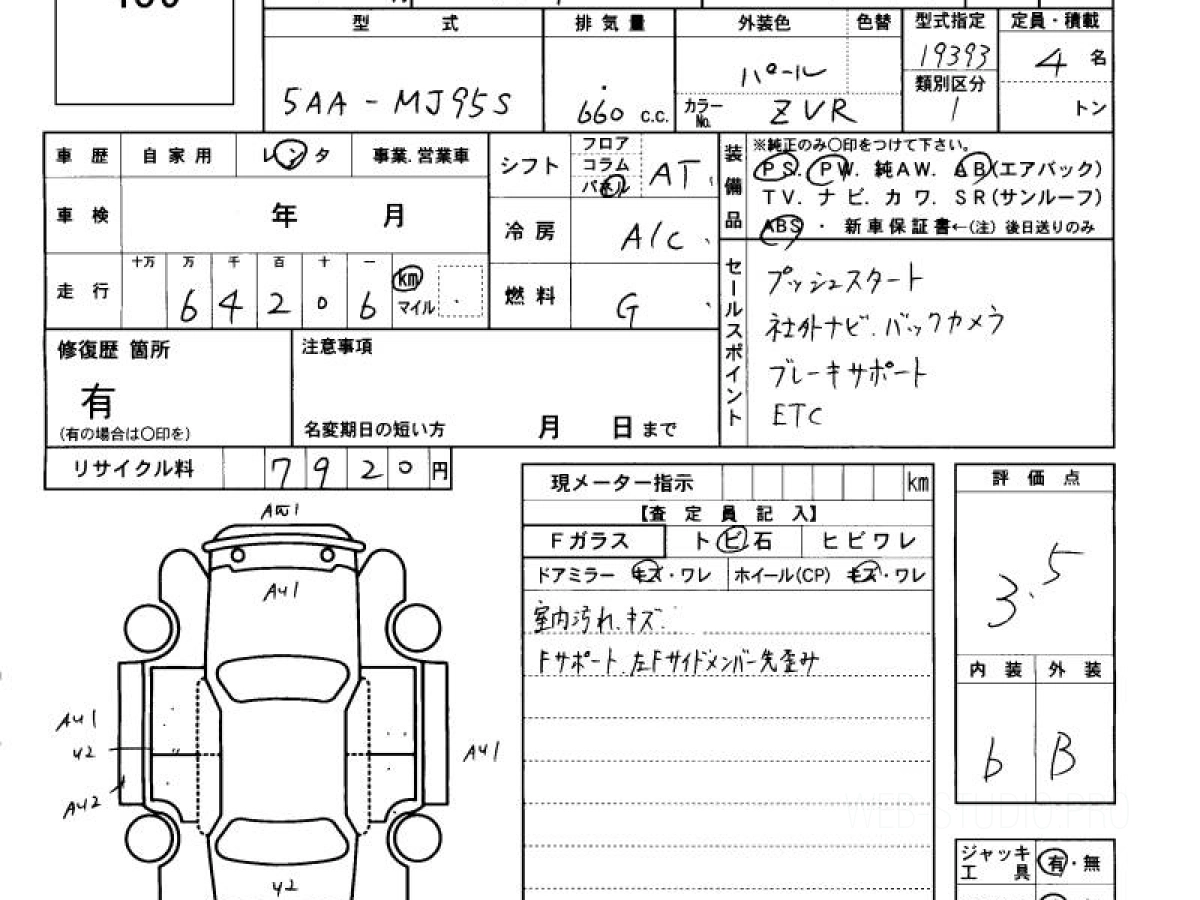 型式 排気量 外装色 色替 型式指定 定員・積載
5AA-MJ95S 660 c.c. パール 19393 4 名
カラーNo. ZVR 類別区分 1 トン
車歴 自家用 レンタ 事業.営業車
車検 年 月
走行 十万 万 千 百 十 一 km マイル
6 4 2 0 6
シフト フロア コラム パネル AT
冷房 A/C
燃料 G
装備品 ※純正のみ〇印をつけて下さい。
PS. PW. 純AW. AB(エアバック)
TV. ナビ. カワ. SR(サンルーフ)
ABS ・ 新車保証書←(注) 後日送りのみ
セールスポイント
プッシュスタート
社外ナビ.バックカメラ
ブレーキサポート
ETC
修復歴 箇所
有
(有の場合は〇印を)
注意事項
名変期日の短い方 月 日まで
リサイクル料 7 9 2 0 円
現メーター指示 km
【査定員記入】
Fガラス トビ石 ヒビワレ
ドアミラー キズ・ワレ ホイール(CP) キズ・ワレ
室内汚れ.キズ.
Fサポート.左Fサイドメンバー先歪み
評価点
3.5
内装 外装
b B
ジャッキ
工具 有・無
A1
AU1
AU1
U2
AU2
AU1
U2
WEB-STUDIO.PRO